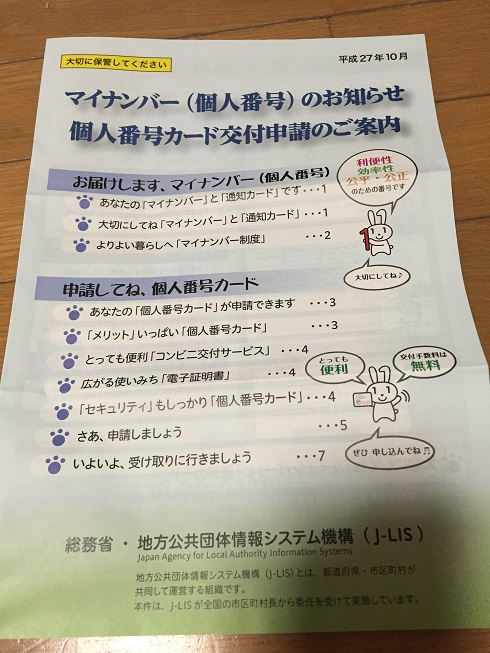 大切に保管してください
平成27年10月
マイナンバー(個人番号)のお知らせ
個人番号カード交付申請のご案内
お届けします、マイナンバー(個人番号)
あなたの「マイナンバー」と「通知カード」です・・・1
大切にしてね「マイナンバー」と「通知カード」・・・1
よりよい暮らしへ「マイナンバー制度」・・・2
利便性
効率性
公平・公正
のための番号です
1
大切にしてね♪
申請してね、個人番号カード
あなたの「個人番号カード」が申請できます・・・3
「メリット」いっぱい「個人番号カード」・・・3
とっても便利「コンビニ交付サービス」・・・4
広がる使いみち「電子証明書」・・・4
「セキュリティ」もしっかり「個人番号カード」・・・4
さあ、申請しましょう・・・5
いよいよ、受け取りに行きましょう・・・7
とっても
便利
交付手数料は
無料
ぜひ 申し込んでね♬
総務省・地方公共団体情報システム機構(J-LIS)
Japan Agency for Local Authority Information Systems
地方公共団体情報システム機構(J-LIS)とは、都道府県・市区町村が
共同して運営する組織です。
本件は、J-LISが全国の市区町村長から委任を受けて実施しています。